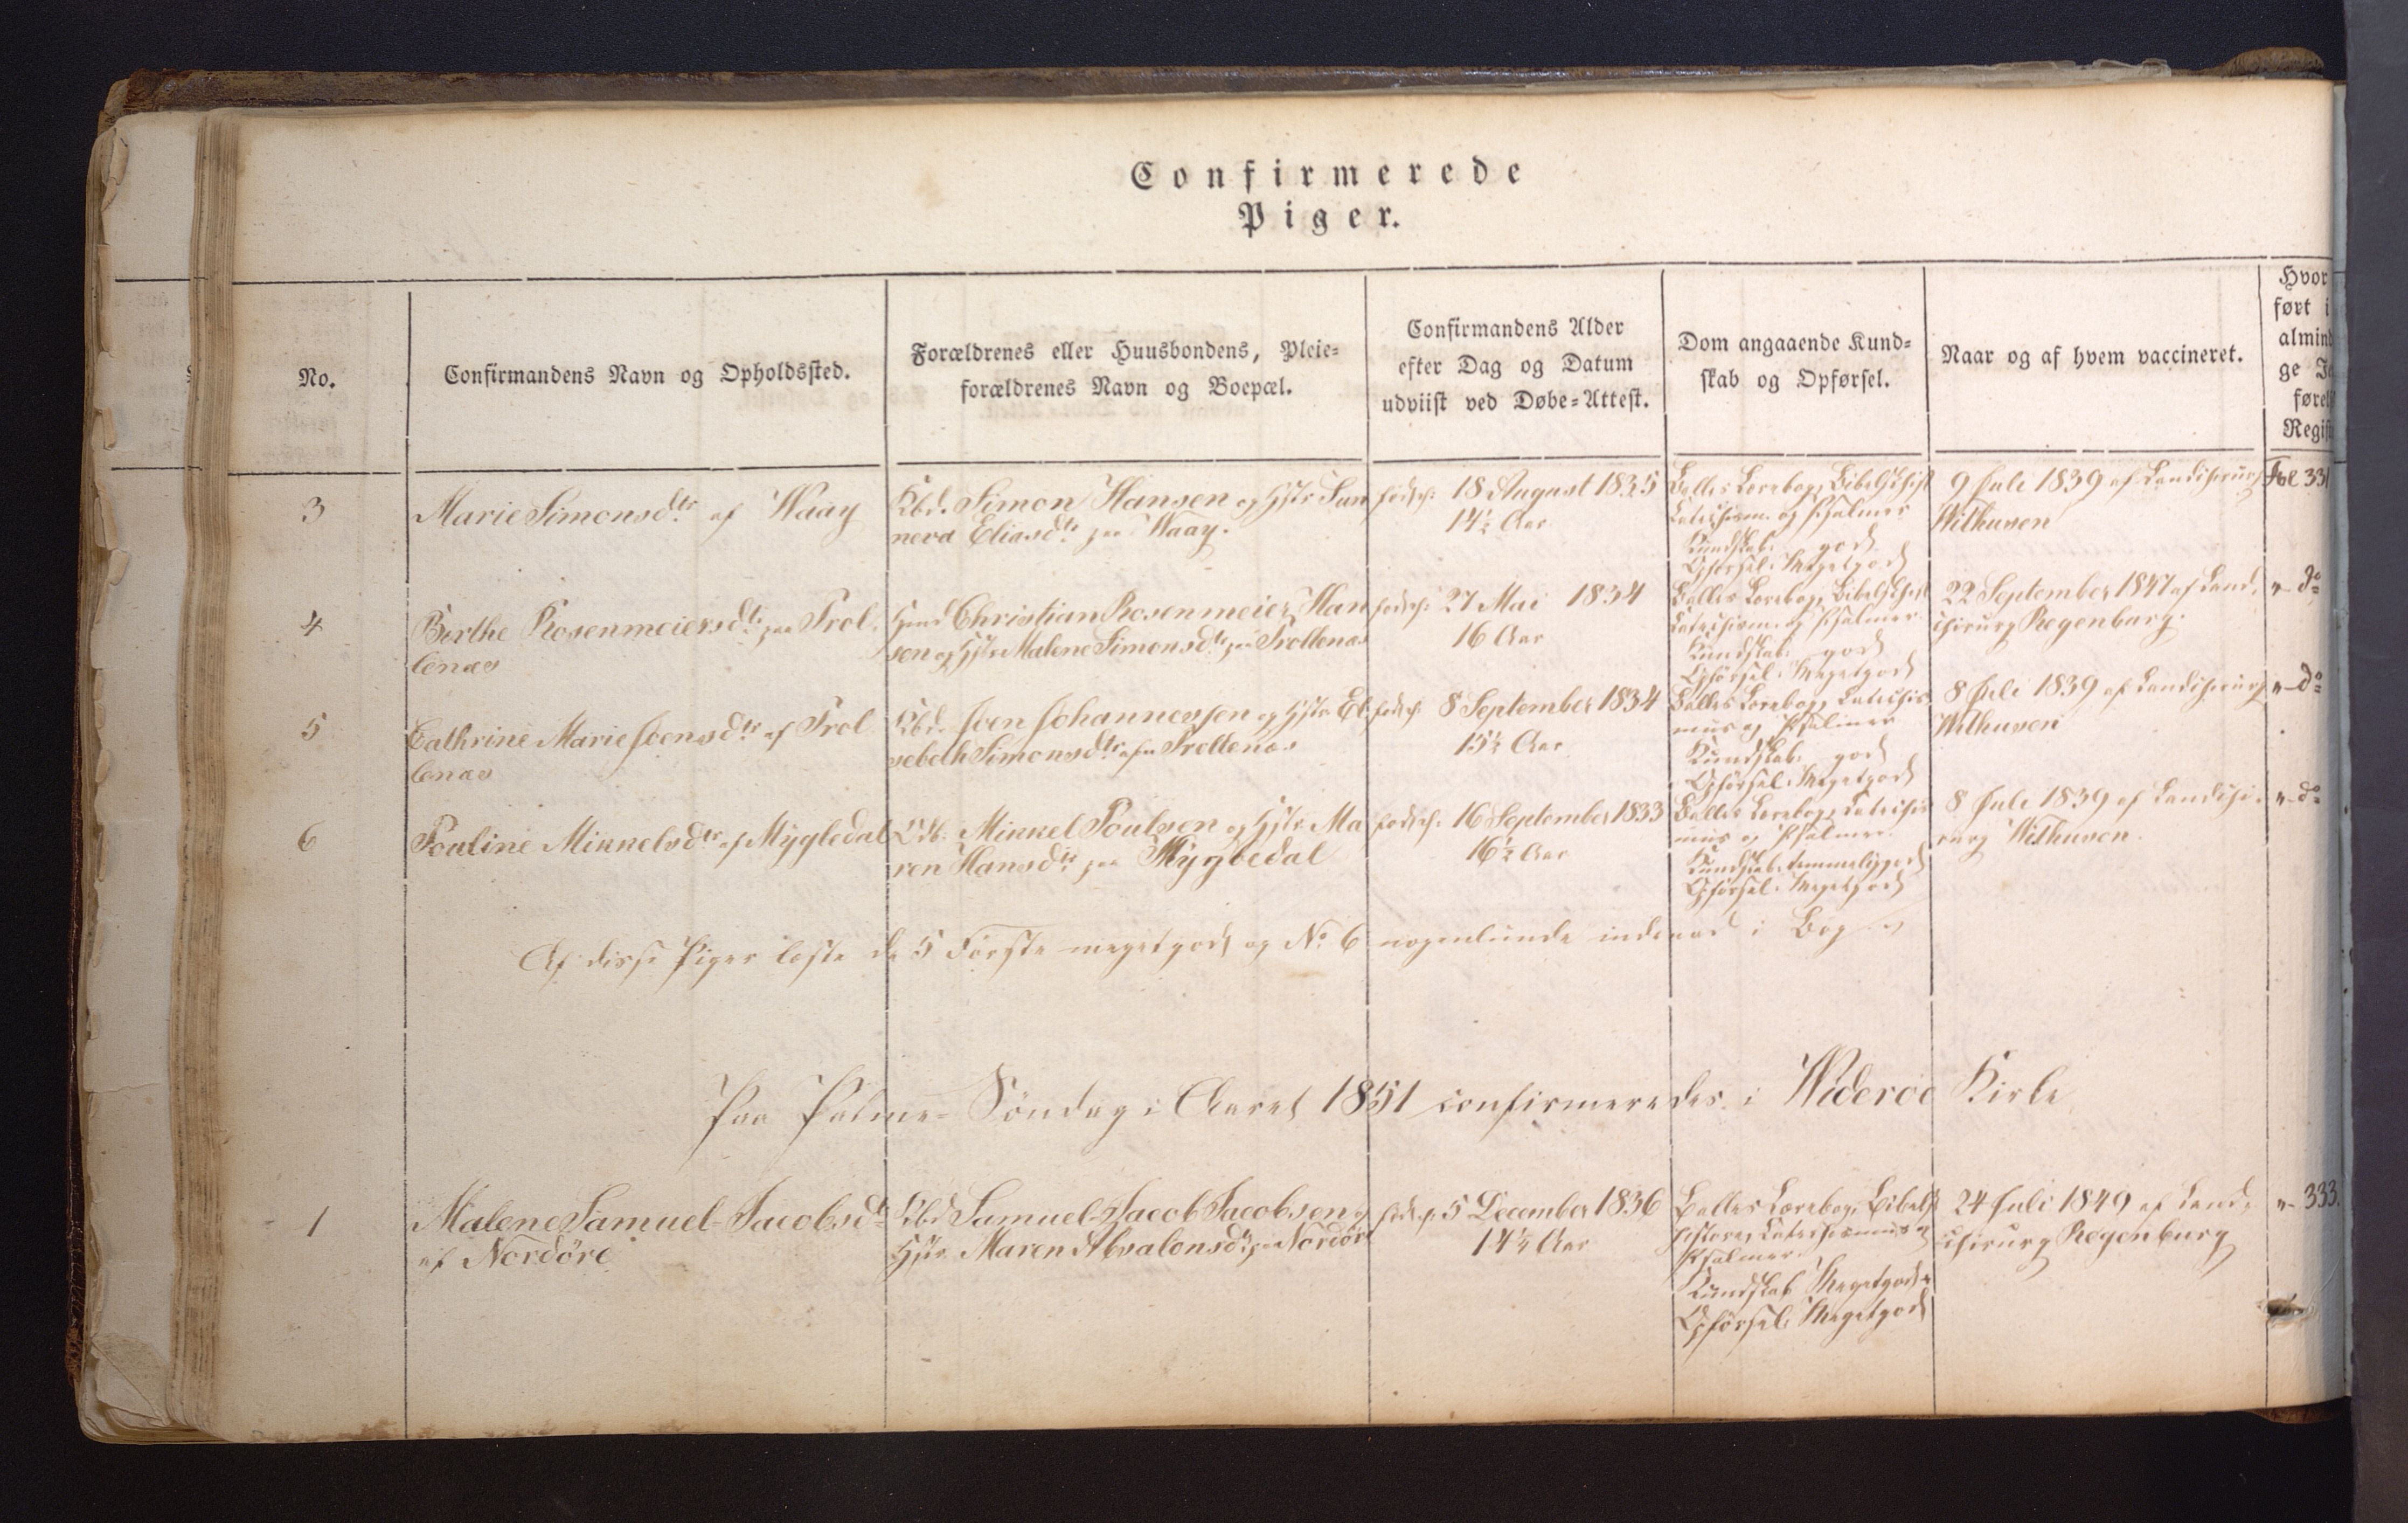 Confirmerede
Piger.
No.
Confirmandens Navn og Opholdssted.
Forældrenes eller Huusbondens, Pleie-
forældrenes Navn og Boepæl.
Confirmandens Alder
efter Dag og Datum
udviist ved Døbe-Attest.
Dom angaaende Kund-
skab og Opførsel.
Naar og af hvem vaccineret.
Hvor
ført i
almind
ge
føre
Regi
3
Marie Simonsdtr af Waay
Kbd. Simon Hansen og Hstr Sun
neva Eliasdtr paa Waay.
18 August 1835
14½ Aar
Balles Lærebog, Bibelhist
Catechism. og Psalmer
Kundskab: god
Opførsel: Megetgod
9 Juli 1839 af Landchirurg
Wilhusen
Fol 331
4
Birthe Rosenmeiersdtr paa Trol
lenæs
Christian Rosenmeier Han
sen og Hstr Malene Simonsdtr paa Trollenæs
27 Mai 1834
16 Aar
Balles Lærebog, Bibelhist
Catechism. og Psalmer
Kundskab: god
Opførsel: Megetgod
22 September 1847 af Land-
chirurg Regenburg.
" do
5
Cathrine Marie Joensdtr af Trol
lenæs
Kbd. Joen Johannessen og Hstr El
sebeth Simonsdtr paa Trollenæs
8 September 1834
15½ Aar
Balles Lærebog, Catechis
mus og Psalmer
Kundskab: god
Opførsel: Megetgod
8 Juli 1839 af Landchirurg
Wilhusen
" do
6
Pouline Mikkelsdtr af Mygledal
Mikkel Poulsen og Hstr Ma
ren Hansdtr paa Mygledal
16 September 1833
16½ Aar
Balles Lærebog, Catechis
mus og Psalmer
Kundskab: temmeliggod
Opførsel: Megetgod
8 Juli 1839 af Landchi-
rurg Wilhusen.
" do
Af disse Piger læste de 5 Første megetgodt og No 6 nogenlunde indenad i Bog
Paa Palme-Søndag i Aaret 1851 confirmeredes i Wideröe Kirke
1
Malene Samuel-Jacobsdtr
af Nordöre
Kbd Samuel-Jacob Jacobsen og
Hstr Maren Absalonsdtr paa Nordöre
5 December 1836
14½ Aar
Balles Lærebog, Bibelsk
historie, Catechismus og
Psalmer.
Kundskab Megetgod
Opførsel: Megetgod
24 Juli 1849 af Land-
chirurg Regenburg
" 333.